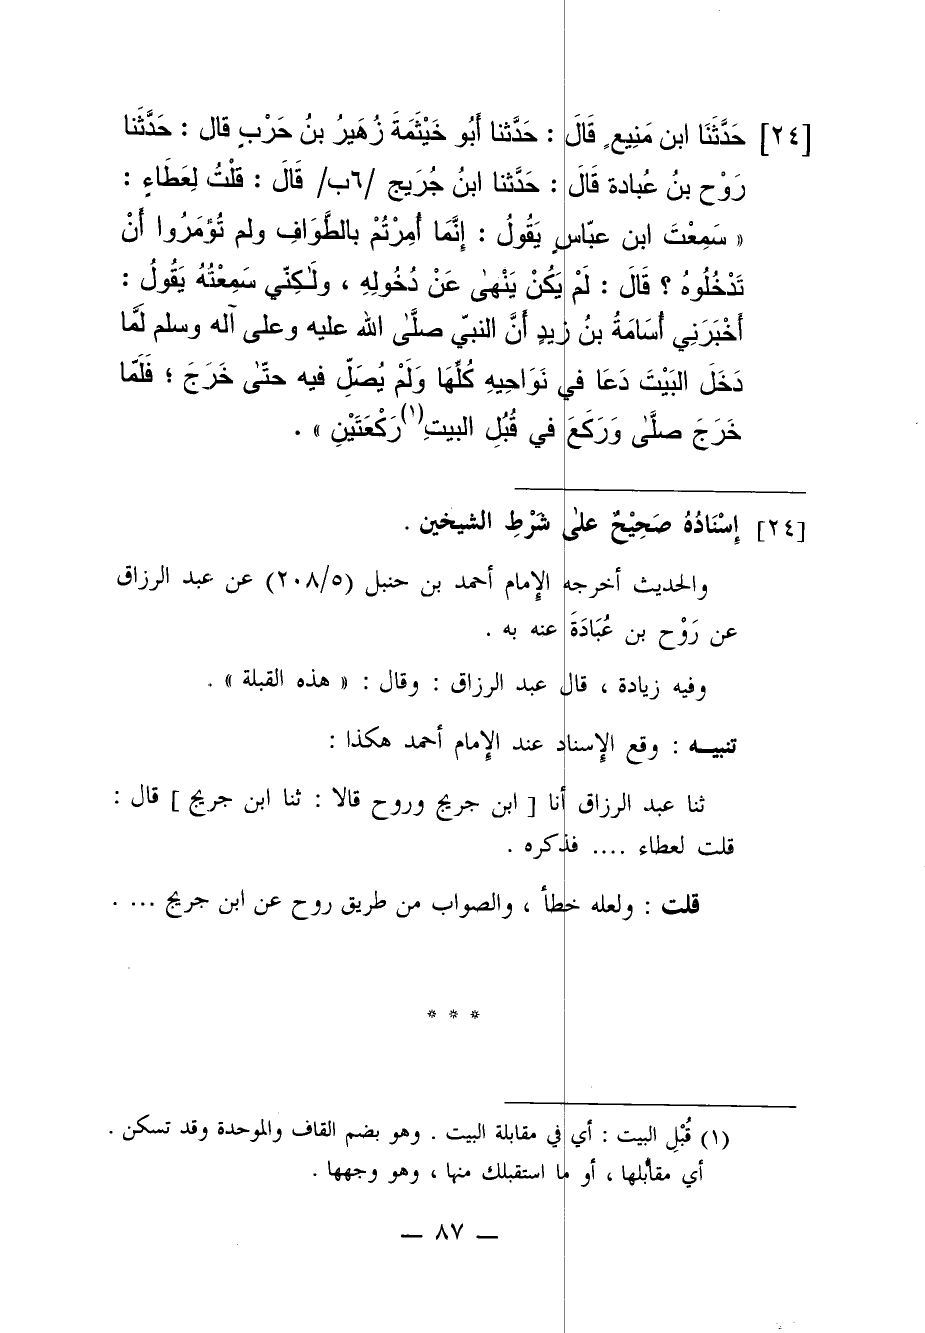 [٢٤] حَدَّثَنَا ابن مَنِيعٍ قَالَ : حَدَّثنا أَبُو خَيْثَمَةَ زُهَيرُ بنُ حَرْبٍ قال : حَدَّثنا
رَوْح بنُ عُبادة قَالَ : حَدَّثنا ابنُ جُرَيج /٦ب/ قَالَ : قَلْتُ لِعَطَاءٍ :
« سَمِعْتَ ابن عبّاسٍ يَقُولُ : إنَّمَا أُمِرْتُمْ بالطَّوَافِ ولم تُؤمَرُوا أنْ
تَدْخُلُوهُ ؟ قَالَ : لَمْ يَكُنْ يَنْهىٰ عَنْ دُخُولِهِ ، ولَـٰكِنّي سَمِعْتُهُ يَقُولُ :
أَخْبَرَنِي أُسَامَةُ بنُ زيدٍ أنَّ النبيّ صلَّىٰ الله عليه وعلى آله وسلم لمَّا
دَخَلَ البَيْتَ دَعَا في نَوَاحِيهِ كُلِّهَا وَلَمْ يُصَلِّ فيه حتّىٰ خَرَجَ ؛ فَلَمّا
خَرَجَ صلَّىٰ وَرَكَعَ في قُبُلِ البيتِ(١) رَكْعَتَيْنِ » .
[٢٤] إِسْنَادُهُ صَحِيْحٌ علىٰ شَرْطِ الشيخين .
والحديث أخرجه الإمام أحمد بن حنبل (٢٠٨/٥) عن عبد الرزاق
عن رَوْح بن عُبَادَةَ عنه به .
وفيه زيادة ، قال عبد الرزاق : وقال : « هذه القبلة » .
تنبيـه : وقع الإسناد عند الإمام أحمد هكذا :
ثنا عبد الرزاق أنا [ ابن جريج وروح قالا : ثنا ابن جريج ] قال :
قلت لعطاء .... فذكره .
قلت : ولعله خطأ ، والصواب من طريق روح عن ابن جريج ... .
* * *
(١) قُبُلِ البيت : أي في مقابلة البيت . وهو بضم القاف والموحدة وقد تسكن .
أي مقابلها ، أو ما استقبلك منها ، وهو وجهها .
— ٨٧ —